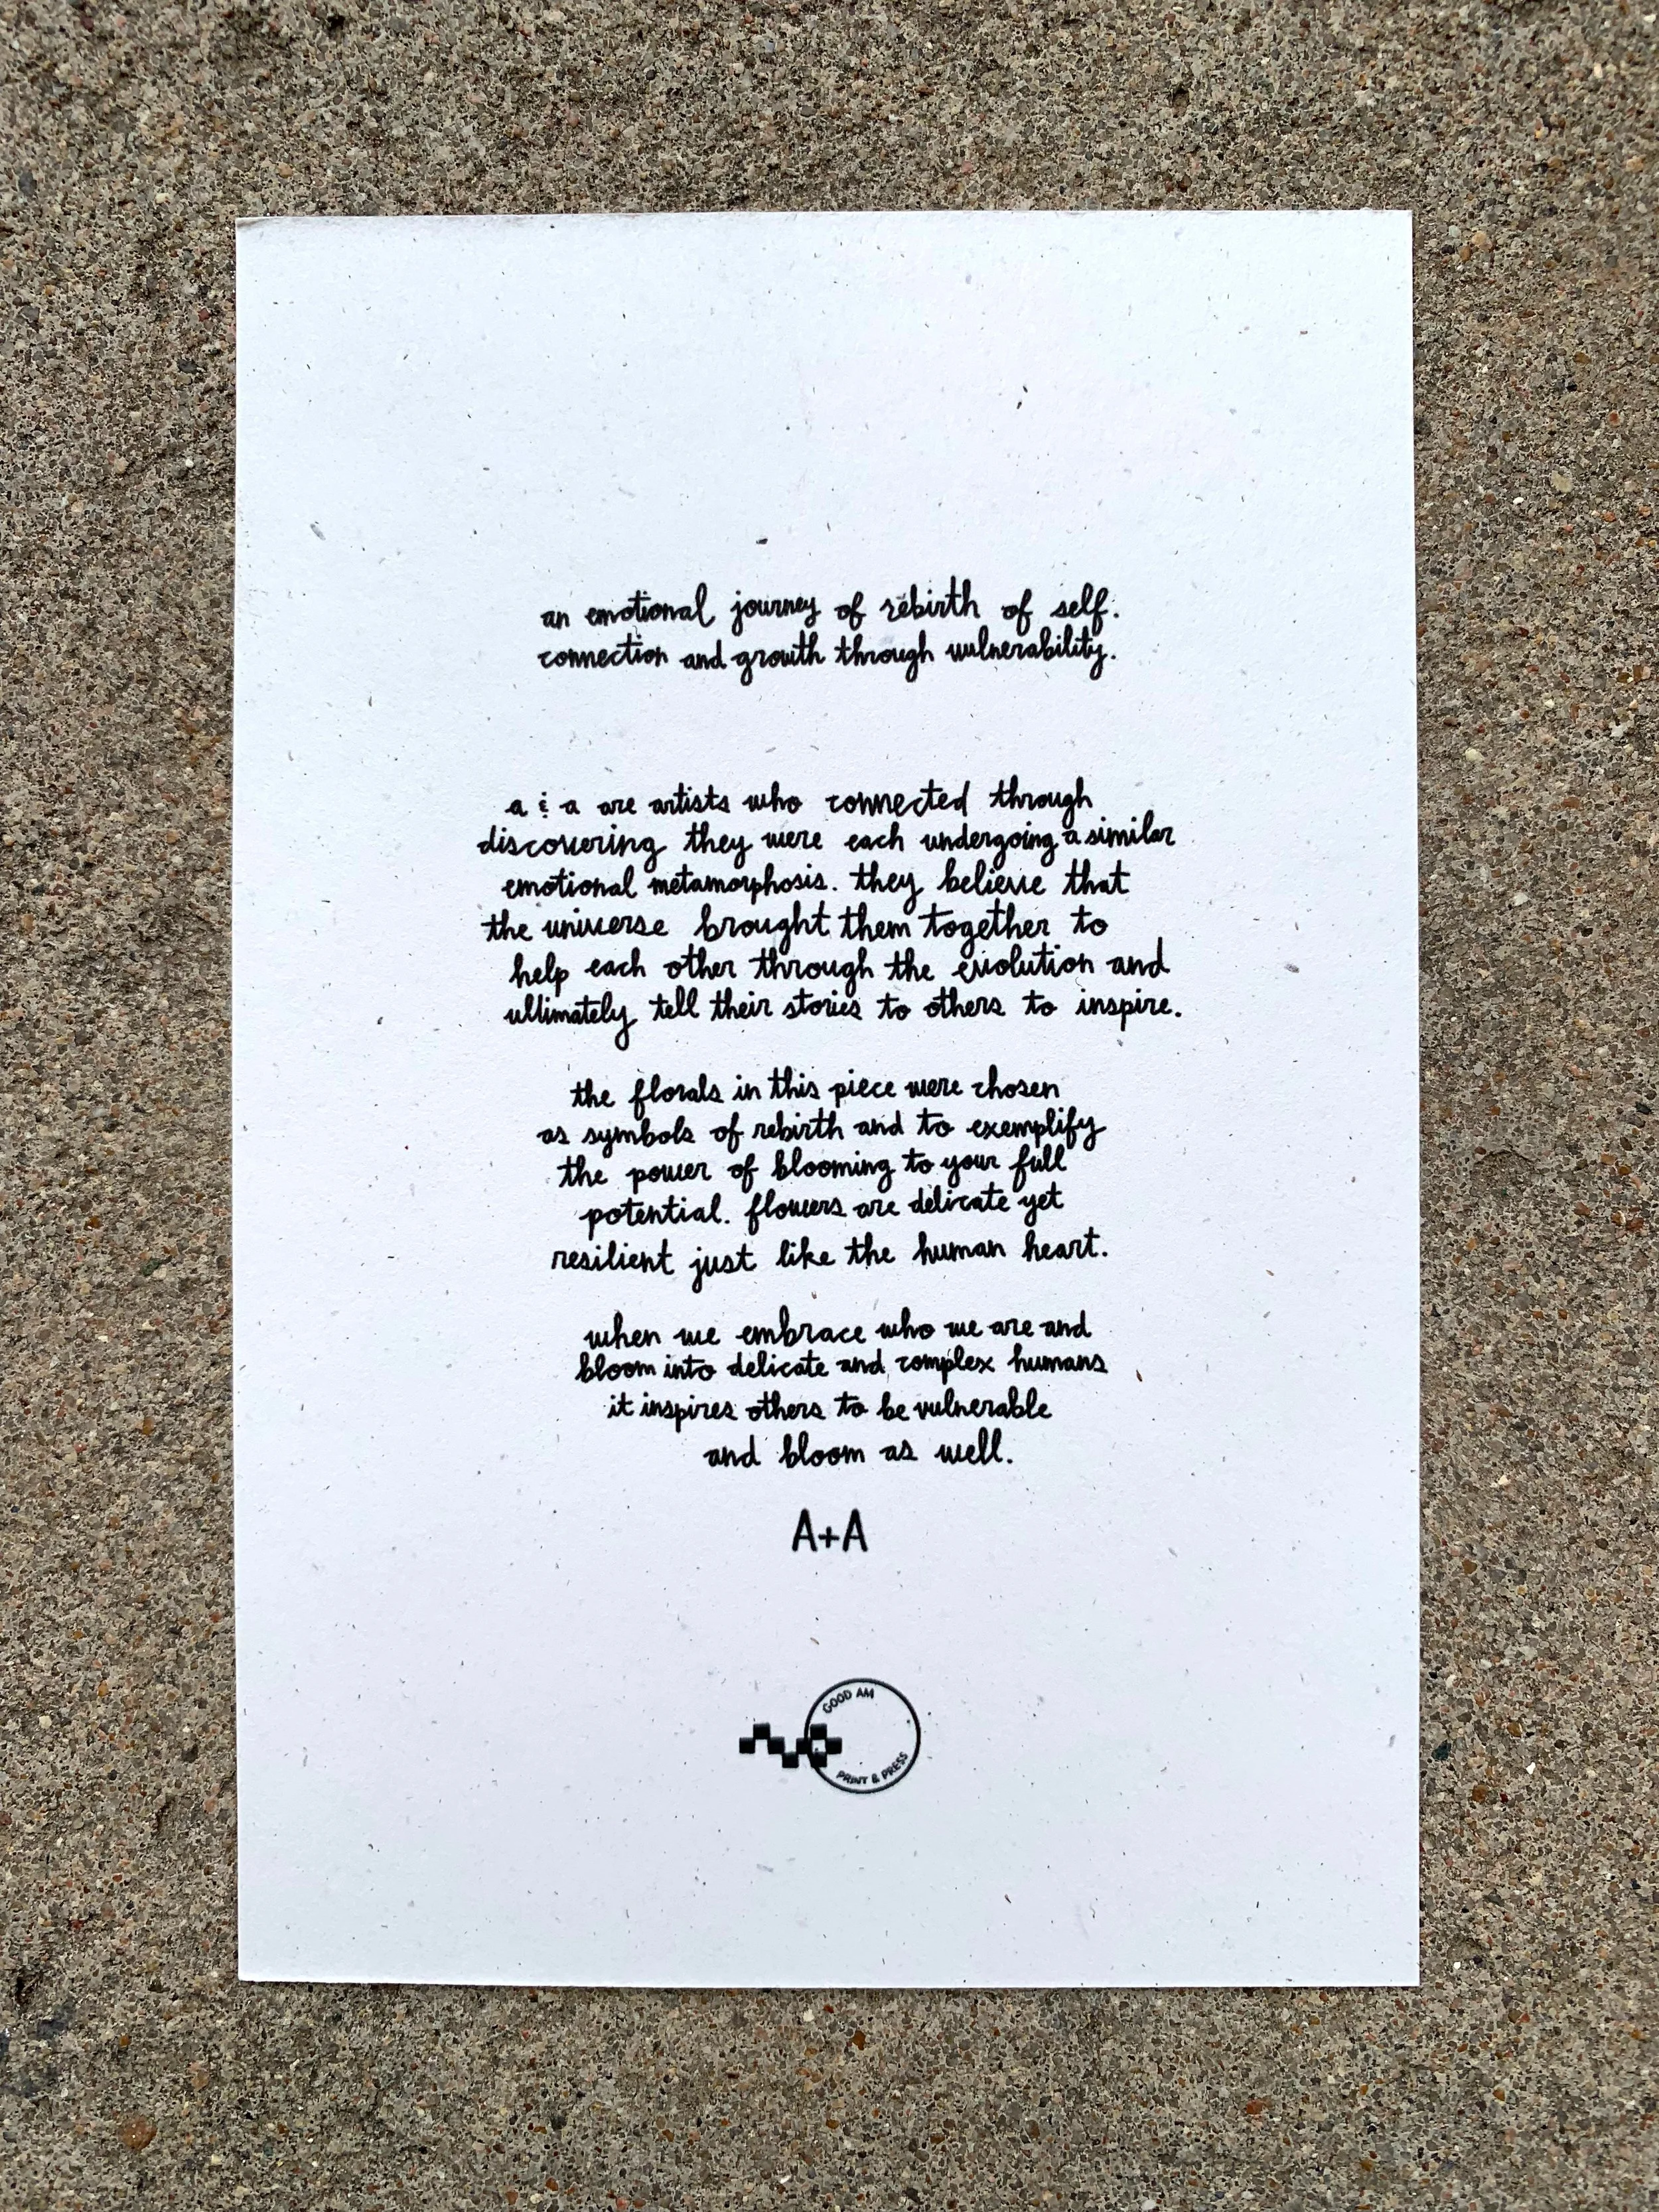 an emotional journey of rebirth of self.
connection and growth through vulnerability.
a & a are artists who connected through
discovering they were each undergoing a similar
emotional metamorphosis. they believe that
the universe brought them together to
help each other through the evolution and
ultimately tell their stories to others to inspire.
the florals in this piece were chosen
as symbols of rebirth and to exemplify
the power of blooming to your full
potential. flowers are delicate yet
resilient just like the human heart.
when we embrace who we are and
bloom into delicate and complex humans
it inspires others to be vulnerable
and bloom as well.
A+A
GOOD AM
PRINT & PRESS